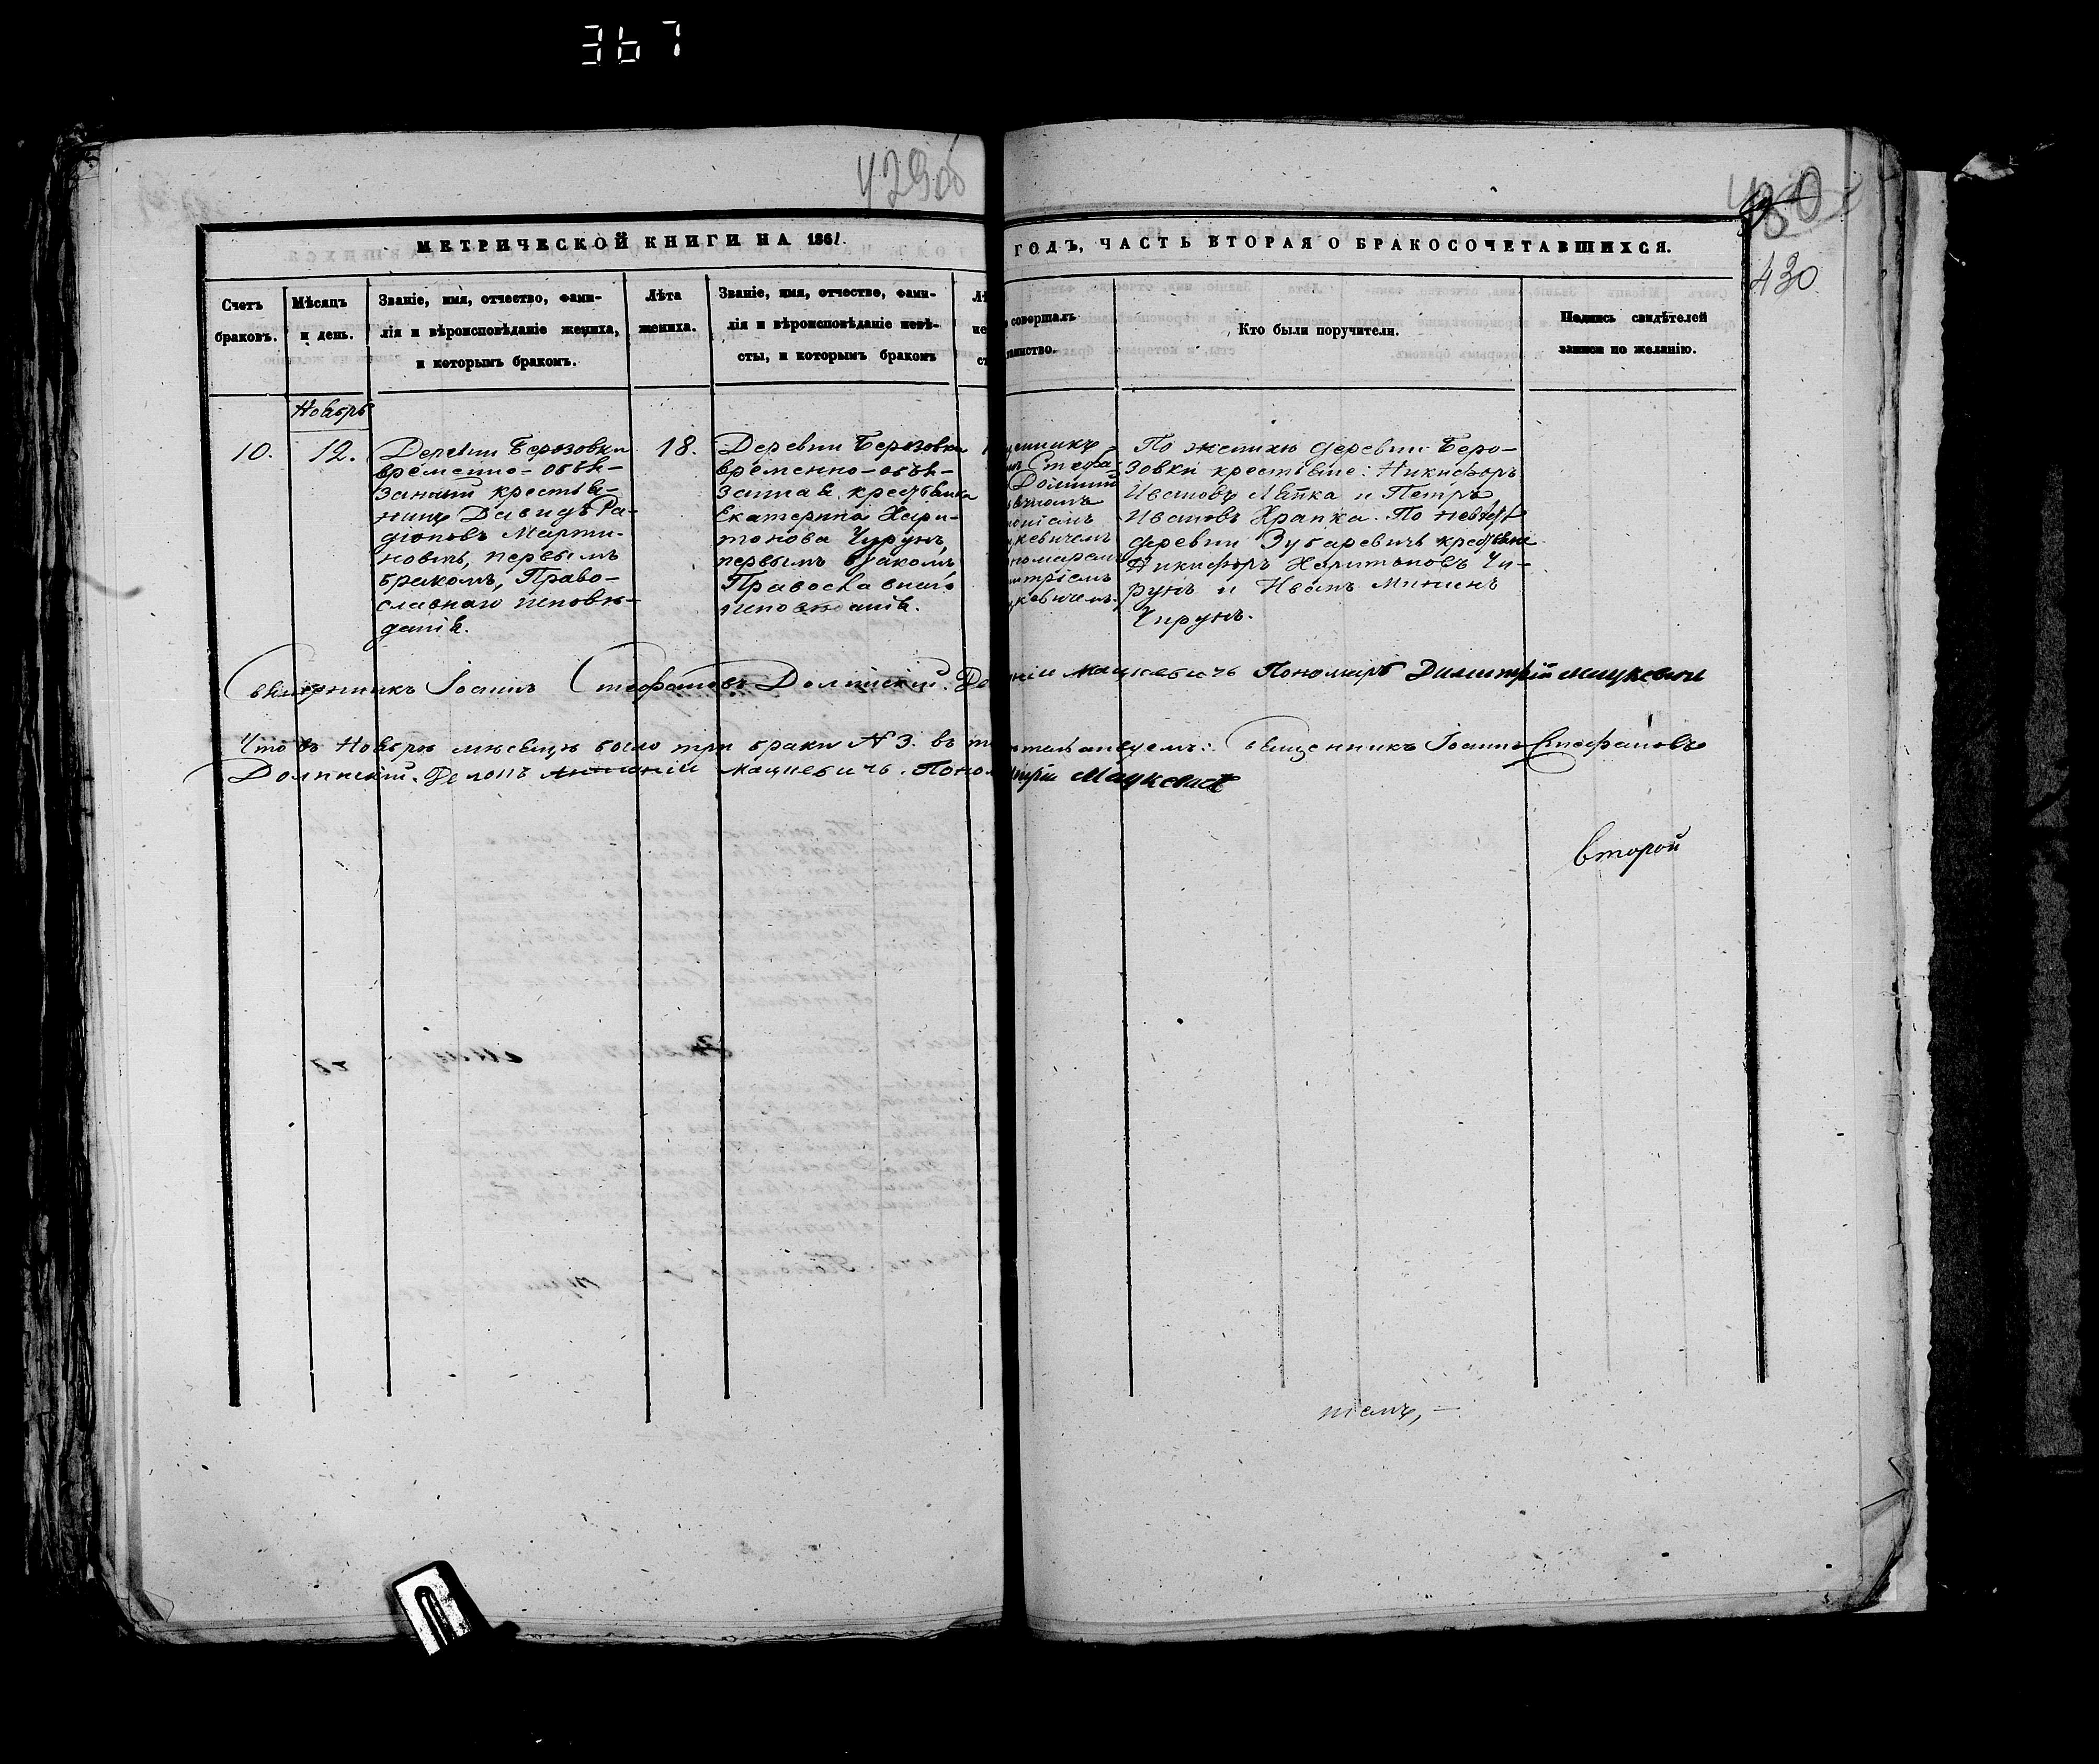 367
429 об
430
МЕТРИЧЕСКОЙ КНИГИ НА 1861
ГОДЪ, ЧАСТЬ ВТОРАЯ О БРАКОСОЧЕТАВШИХСЯ.
430
Счетъ
браковъ.
Мѣсяцъ
и день.
Званіе, имя, отчество, фами-
лія и вѣроисповѣданіе жениха,
и которымъ бракомъ.
Лѣта
жениха.
Званіе, имя, отчество, фами-
лія и вѣроисповѣданіе невѣ-
сты, и которымъ бракомъ
Лѣ
не
ст
совершалъ
таинство.
Кто были поручители.
Подпись свидѣтелей
записи по желанію.
Ноябрь
10.
12.
Деревни Березовки
временно-обя-
занный крестья-
нинъ Давидъ Ра-
діоновъ Марти-
новичъ, первымъ
бракомъ, Право-
славнаго исповѣ-
данія.
18.
Деревни Березовки
временно-обя-
занная крестьянка
Екатерина Хари-
тонова Чурунъ,
первымъ бракомъ,
Православнаго
исповѣданія.
1
щенникъ
нъ Стефа-
Долинскій
номаремъ
итріемъ
цкевичемъ.
По женихѣ деревни Бере-
зовки крестьяне: Никифоръ
Ивановъ Лапка и Петръ
Ивановъ Храпка. По невѣстѣ
деревни Зубаревичъ крестьяне
Никифоръ Харитоновъ Чи-
рунъ и Иванъ Мининъ
Чирунъ.
Священникъ Іоаннъ Стефановъ Долинскій. Де
ній Мацкевичъ Пономарь Димитрій Мацкевич
Что въ Ноябрѣ мѣсяцѣ было три браки № 3. въ т
Священникъ Іоаннъ Стефановъ
Долинскій. Деконъ Антоній Мацкевичъ. Поном
итрій Мацкевич
второй
темъ, —